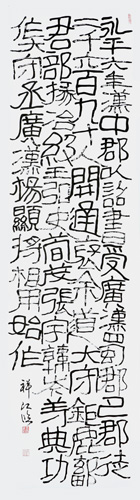 永平六年漢中郡以詔書受廣漢蜀郡巴郡徒
二千六百九十人開通褒余道太守鉅鹿鄐
君部掾冶級王弘史荀茂張宇韓岑等典功
作太守丞廣漢楊顯將相用始作